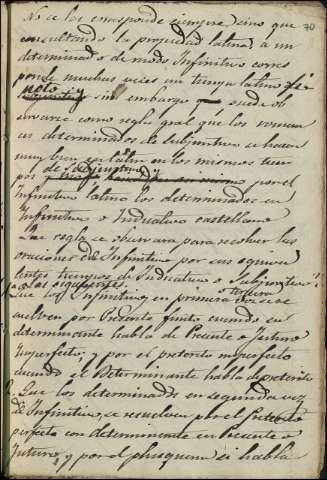 70
No se los corresponde siempre, sino que
consultando la propiedad latina, a un
determinado de modo Infinitivo corres
ponde muchas veces un tiempo latino de
sin embargo puede ob
servarse como regla gral que los romanos
determinados de subjuntivo se hacen
muy bien en latin en los mismos tiem
pos de subjuntivo y por el
Infinitivo latino los determinados en
Infinitivo o Indicativo castellano
Que regla se observara para resolver las
oraciones de Infinitivo por sus equiva
lentes tiempos de Indicativo o Subjuntivo?
las siguientes.
Que los Infinitivos en primera voz se re
suelven por Presente finito cuando su
determinante habla de Presente o Futuro
Imperfecto, y por el preterito imperfecto
cuando el Determinante habla de preterito
2a. Que los determinados en segunda voz
de Infinitivo, se resuelven por el Preterito
perfecto con determinante en Presente o
Futuro, y por el plusquam si habla